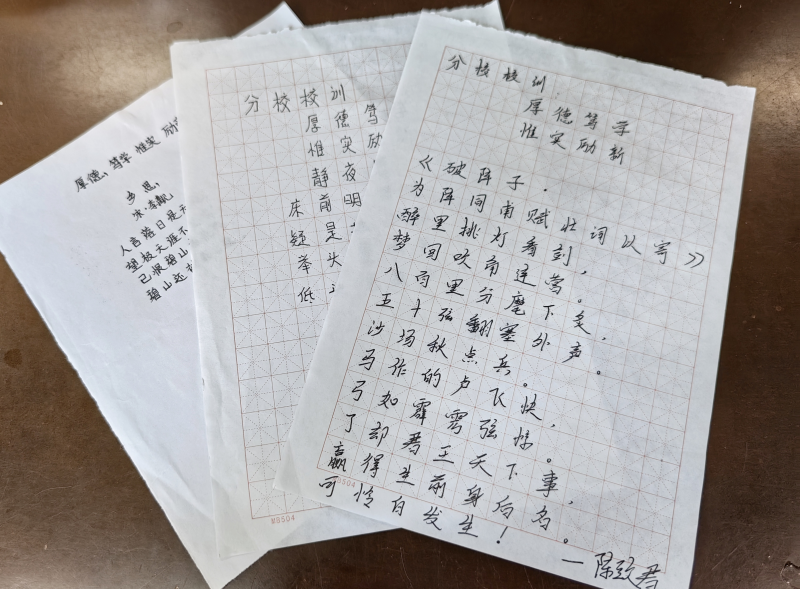 厚德、笃学 惟实 励
乡思
宋·李觏
人言落日是
望极天涯不
已恨碧山
碧山还
分校校训
厚德笃
惟实励
静夜
床前明
疑是
举头
低
M9504
分校校训
厚德笃学
惟实励新
《破阵子.
为阵同甫赋壮词以寄》
醉里挑灯看剑,
梦回吹角连营。
八百里分麾下炙,
五十弦翻塞外声。
沙场秋点兵。
马作的卢飞快,
弓如霹雳弦惊。
了却君王天下事,
赢得生前身后名。
可怜白发生!
—陈致君